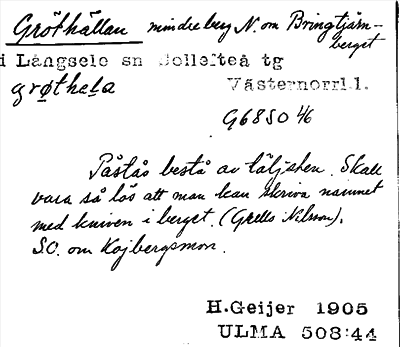 Gröthällan mindre berg N. om Bringtjärn-
berget
i Långsele sn Sollefteå tg
grøthela Västernorrl l.
G68SO 46
Påstås bestå av täljsten. Skall
vara så lös att man kan skriva namnet
med kniven i berget. (Grells Nilsson).
SO. om Kojbergsmon.
H.Geijer 1905
ULMA 508:44